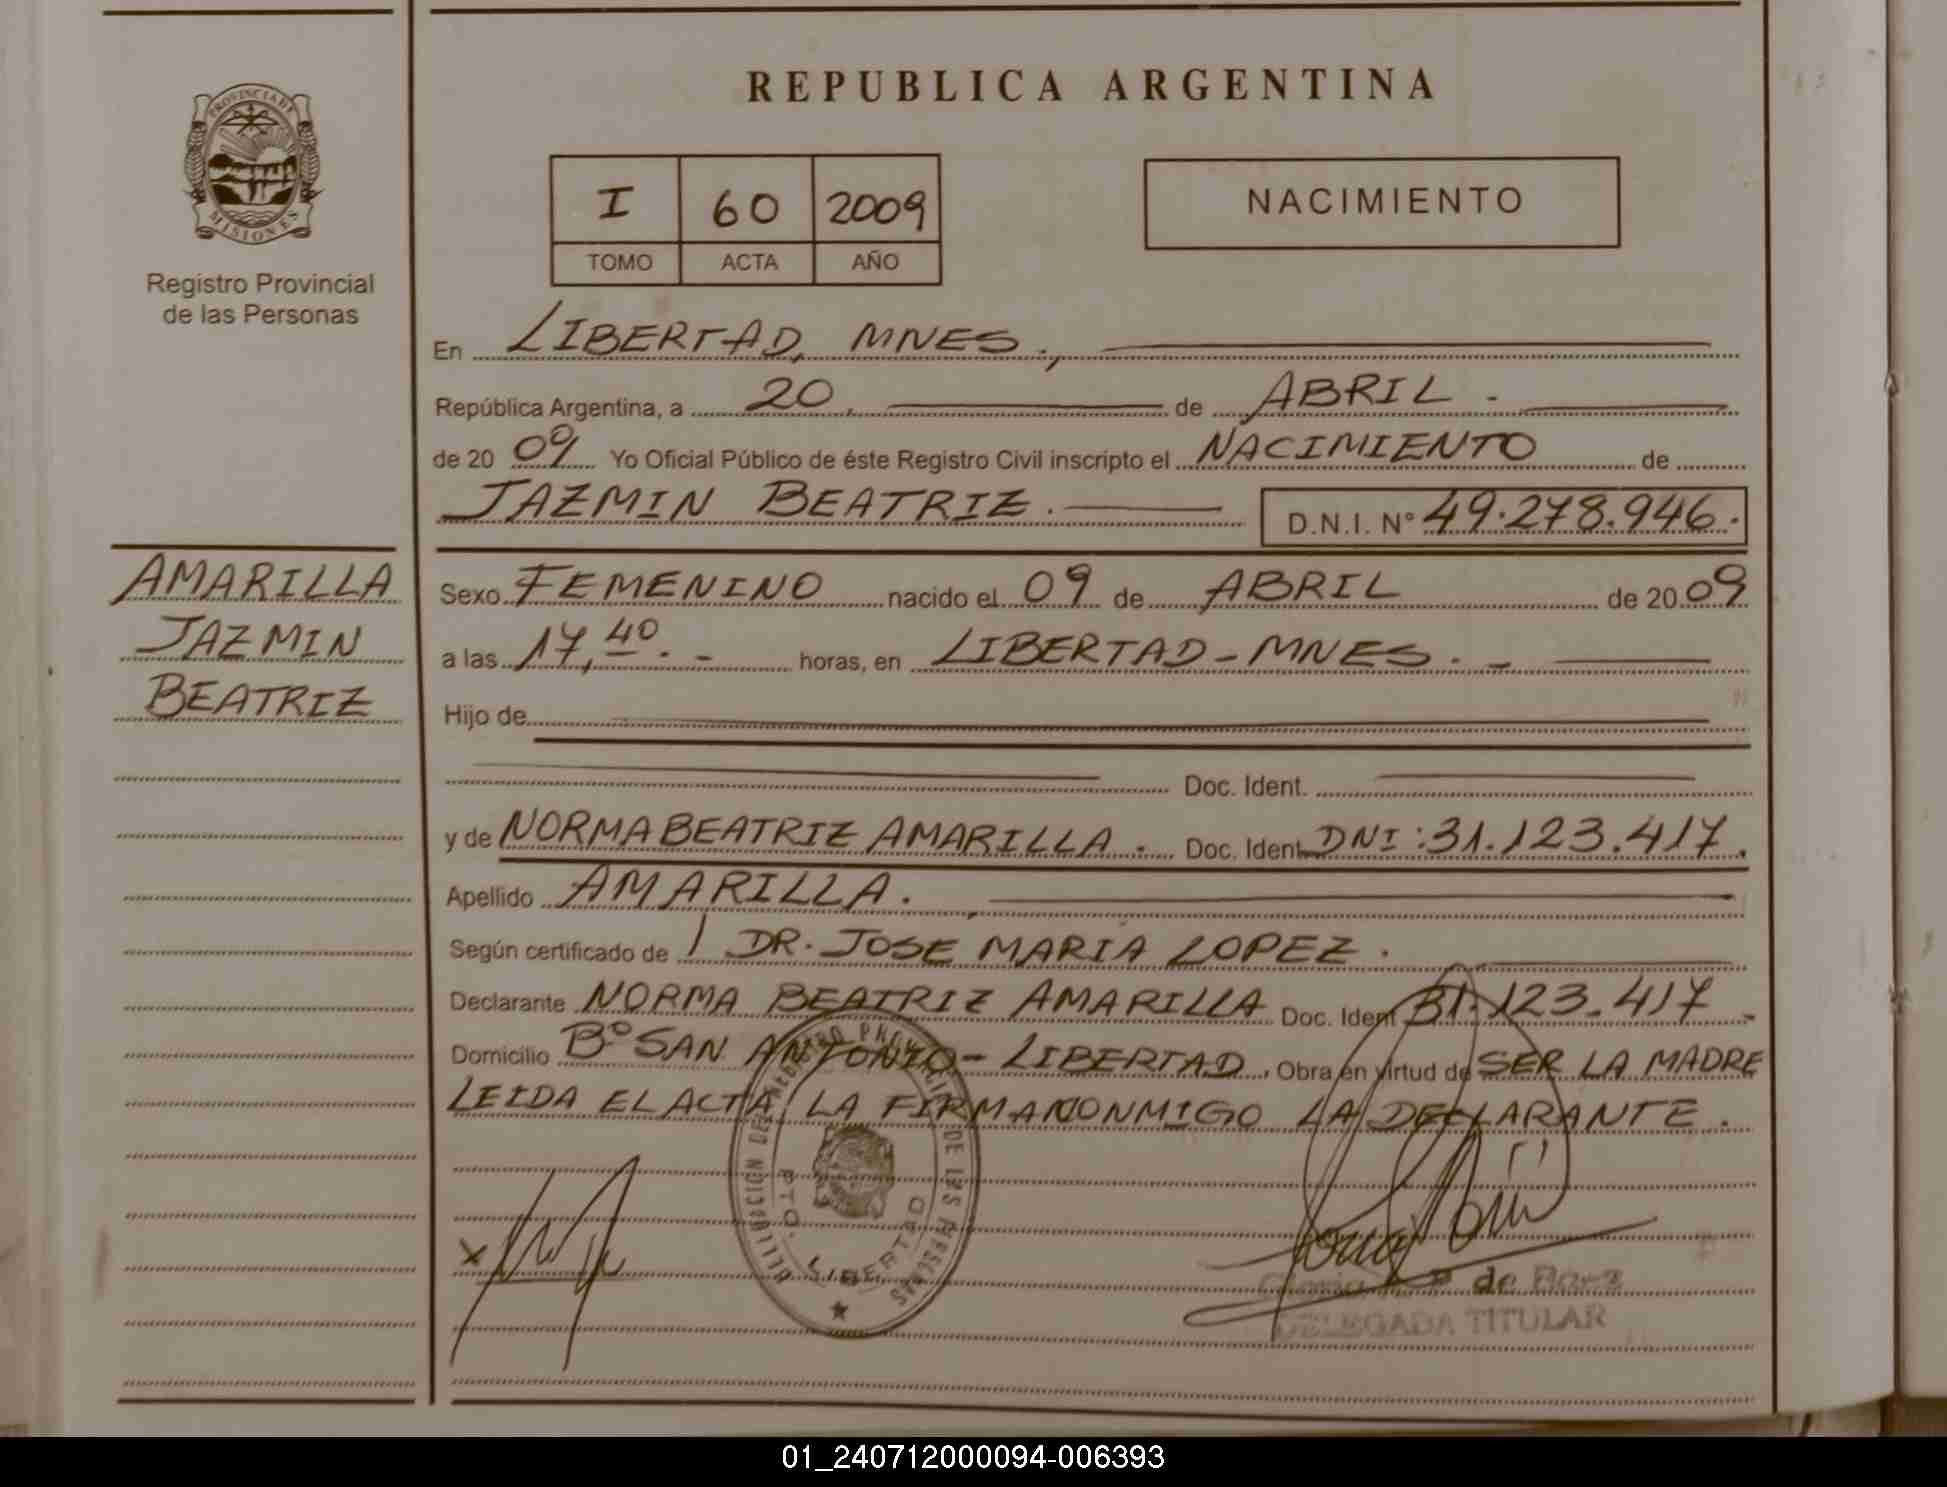 REPUBLICA ARGENTINA
PROVINCIA DE
MISIONES
Registro Provincial
de las Personas
I 60 2009
TOMO ACTA AÑO
NACIMIENTO
En LIBERTAD, MNES.,
República Argentina, a 20, de ABRIL.
de 20 09 Yo Oficial Público de éste Registro Civil inscripto el NACIMIENTO de
JAZMIN BEATRIZ. D.N.I. N° 49.278.946.
AMARILLA
JAZMIN
BEATRIZ
Sexo FEMENINO nacido el 09 de ABRIL de 20 09
a las 17,40.- horas, en LIBERTAD-MNES.-
Hijo de
Doc. Ident.
y de NORMA BEATRIZ AMARILLA. Doc. Ident. DNI: 31.123.417.
Apellido AMARILLA.
Según certificado de DR. JOSE MARIA LOPEZ.
Declarante NORMA BEATRIZ AMARILLA Doc. Ident 31.123.417.
Domicilio B° SAN ANTONIO - LIBERTAD, Obra en virtud de SER LA MADRE
LEIDA EL ACTA, LA FIRMA CONMIGO LA DECLARANTE.
DELEGACION DEL REGISTRO PROVINCIAL DE LAS PERSONAS
PTO. LIBERTAD
X
Gloria de
DELEGADA TITULAR
01_240712000094-006393